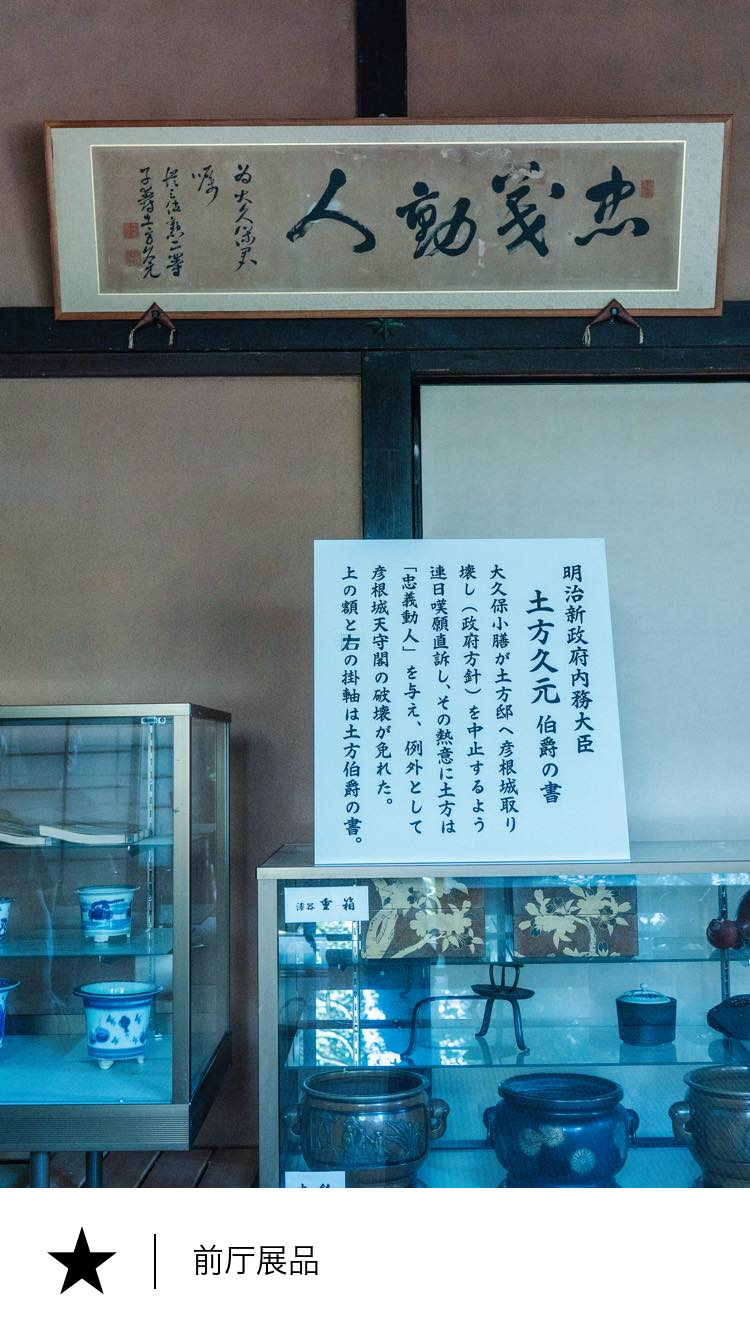 忠義動人
為大久保君
嘱
従三位勲二等
子爵土方久元
明治新政府内務大臣
土方久元 伯爵の書
大久保小膳が土方邸へ彦根城取り
壊し（政府方針）を中止するよう
連日嘆願直訴し、その熱意に土方は
「忠義動人」を与え、例外として
彦根城天守閣の破壊が免れた。
上の額と右の掛軸は土方伯爵の書。
漆器 重箱
前厅展品